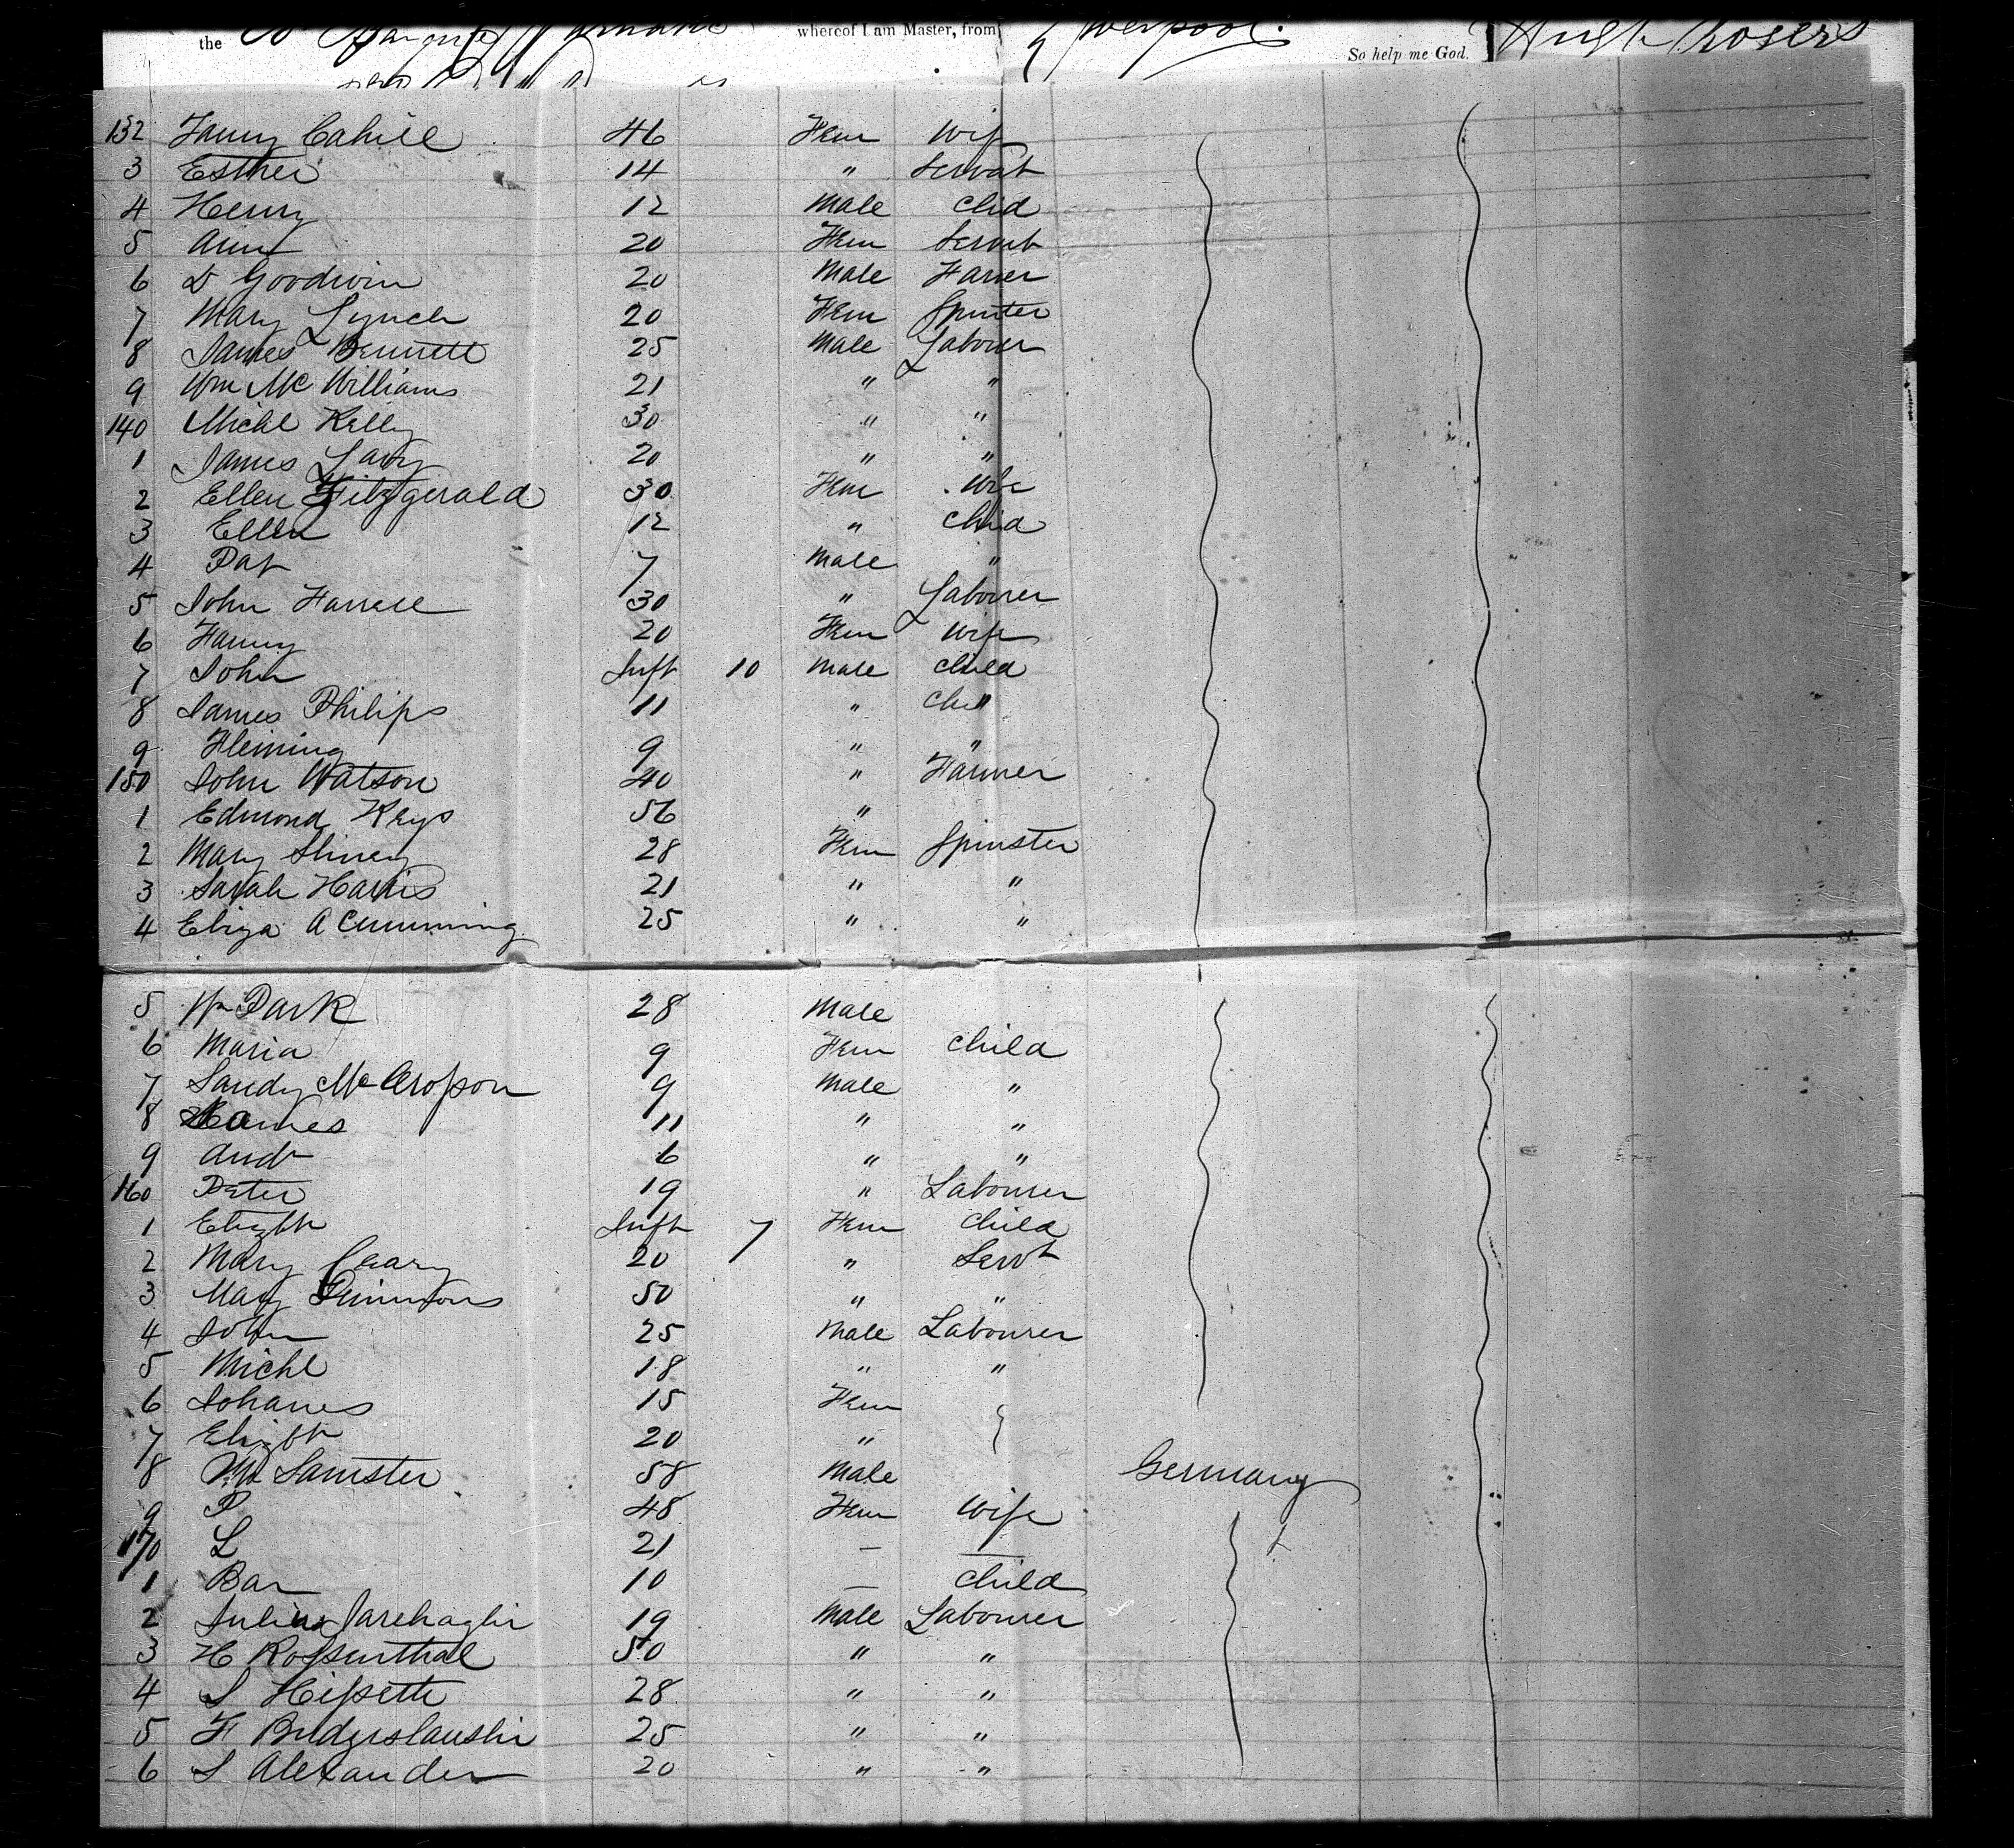 the whereof I am Master, from Liverpool. So help me God. Hugh
132 Fanny Cahill 46 Fem Wif
3 Esther 14 " Servat
4 Henry 12 Male Chid
5 Ann 20 Fem Servt
6 D Goodwin 20 Male Farer
7 Mary Lynch 20 Fem Spinter
8 James Bennett 25 Male Labourer
9 Wm McWilliams 21 " "
140 Michl Kelly 30 " "
1 James 20 " "
2 Ellen Fitzgerald 30 Fem Wife
3 Ellen 12 " Child
4 Pat 7 Male "
5 John Farrell 30 " Labourer
6 Fanny 20 Fem Wife
7 John Inft 10 Male Child
8 James Philips 11 " Chi"
9 Fleming 9 " "
150 John Watson 40 " Farmer
1 Edmond Keys 56 "
2 Mary 28 Fem Spinster
3 Sarah Harris 21 " "
4 Eliza A Cumming 25 " "
5 Wm Park 28 Male
6 Maria 9 Fem Child
7 Sandy 9 Male "
8 James 11 " "
9 Andr 6 " "
160 Peter 19 " Labourer
1 Elizbth Inft 7 Fem Child
2 Mary Geary 20 " Servt
3 Mary 50 " "
4 John 25 Male Labourer
5 Michl 18 " "
6 Johanes 15 Fem
7 Elizbth 20 "
8 M Samster 58 Male Germany
9 P 48 Fem Wife
170 L 21 — —
1 Bar 10 — Child
2 Julius 19 Male Labourer
3 H Rossenthal 50 " "
4 S Hissett 28 " "
5 F 25 " "
6 S Alexander 20 " "